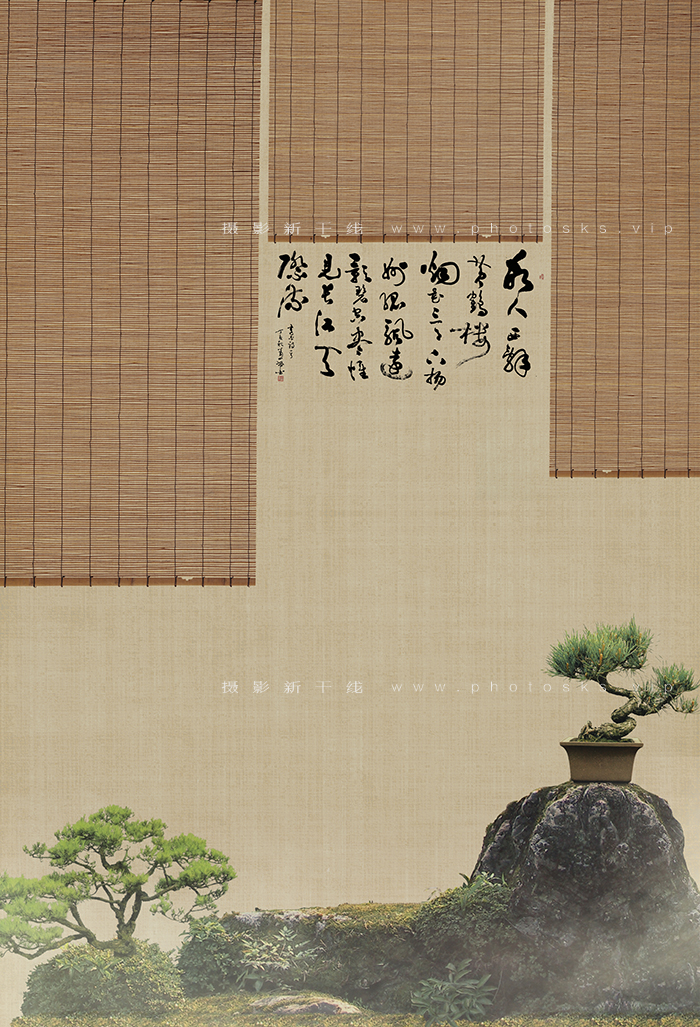 摄影新干线 www.photosks.vip
故人西辭
黄鶴楼
烟花三月下揚
州孤帆遠
影碧空盡惟
見長江天
際流
摄影新干线 www.photosks.vip